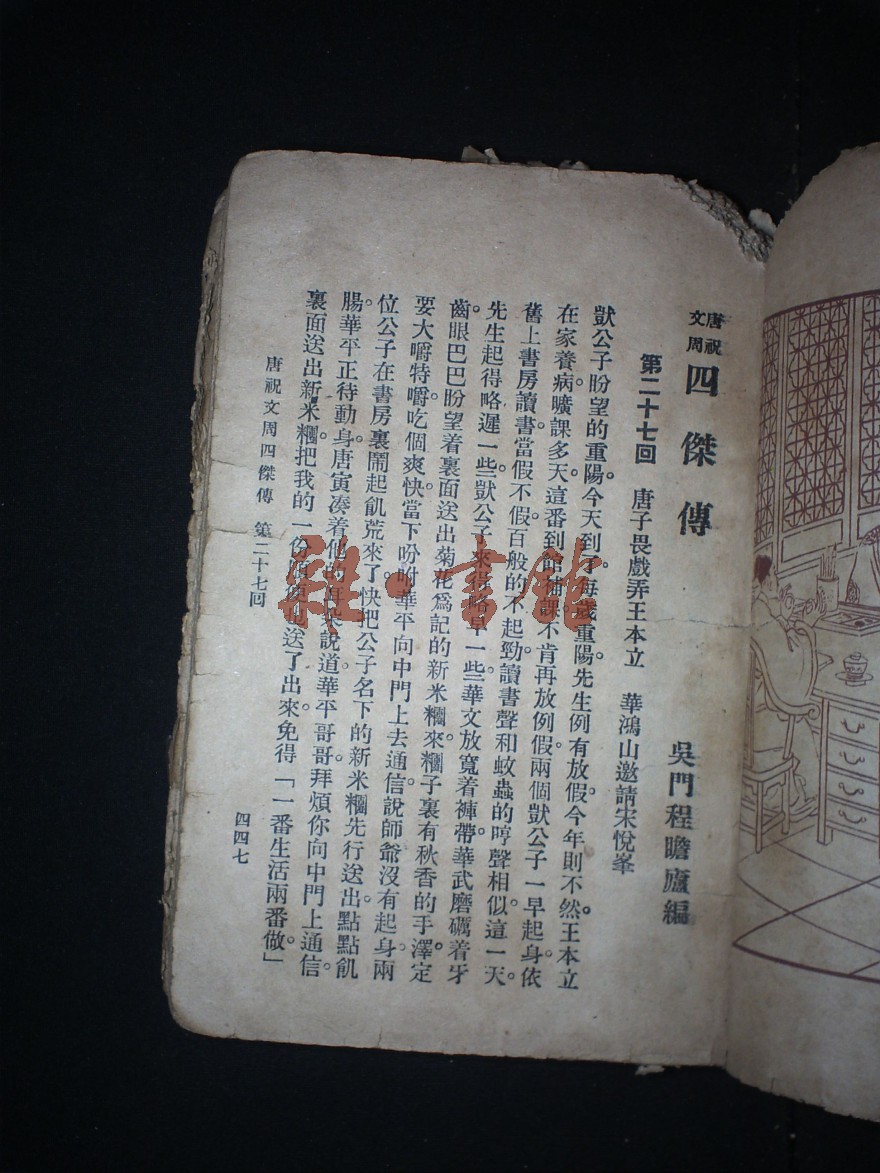 唐祝文周四傑傳
吳門程瞻廬編
第二十七回　唐子畏戲弄王本立　華鴻山邀請宋悅峯
獃公子盼望的重陽。今天到了。每歲重陽先生例有放假。今年則不然。王本立
在家養病曠課多天。這番到館補課不肯再放例假。兩個獃公子一早起身。依
舊上書房讀書。當假不假百般的不起勁。讀書聲和蚊蟲的哼聲相似。這一天。
先生起得略遲一些。獃公子來得略早一些。華文放寬着褲帶。華武磨礪着牙
齒。眼巴巴盼望着裏面送出菊花爲記的新米糰來。糰子裏有秋香的手澤。定
要大嚼特嚼吃個爽快。當下吩咐華平向中門上去通信。說師爺沒有起身。兩
位公子在書房裏鬧起飢荒來了。快把公子名下的新米糰先行送出點點飢
腸。華平正待動身。唐寅湊着他的耳朵說道。華平哥哥。拜煩你向中門上通信
裏面送出新米糰。把我的一份順便也送了出來。免得「一番生活兩番做。」
唐祝文周四傑傳　第二十七回
四四七
雜·書館